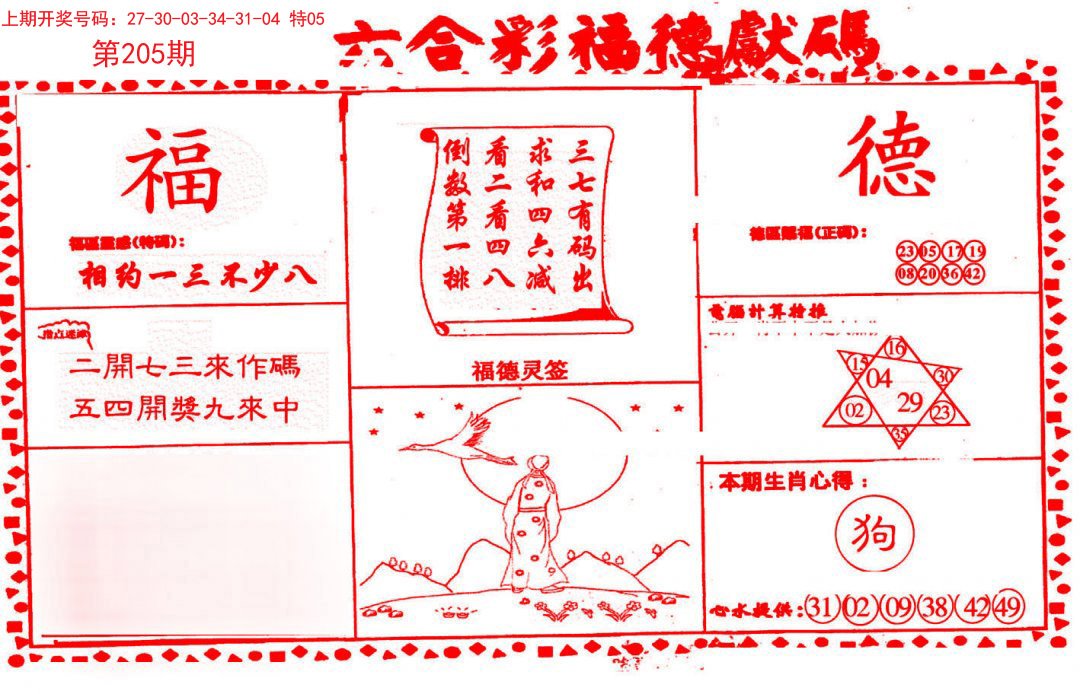 上期开奖号码：27-30-03-34-31-04 特05
第205期
六合彩福德獻碼
福
福區靈感(特碼)：
相约一三不少八
指点迷津
二開七三來作碼
五四開獎九來中
三七有码出
求和四六减
看二看四八
倒数第一排
福德灵签
德
德區賜福(正碼)：
23 05 17 19
08 20 36 42
電腦計算特推
16
15
04
30
02
29
23
35
本期生肖心得：
狗
心水提供：31 02 09 38 42 49